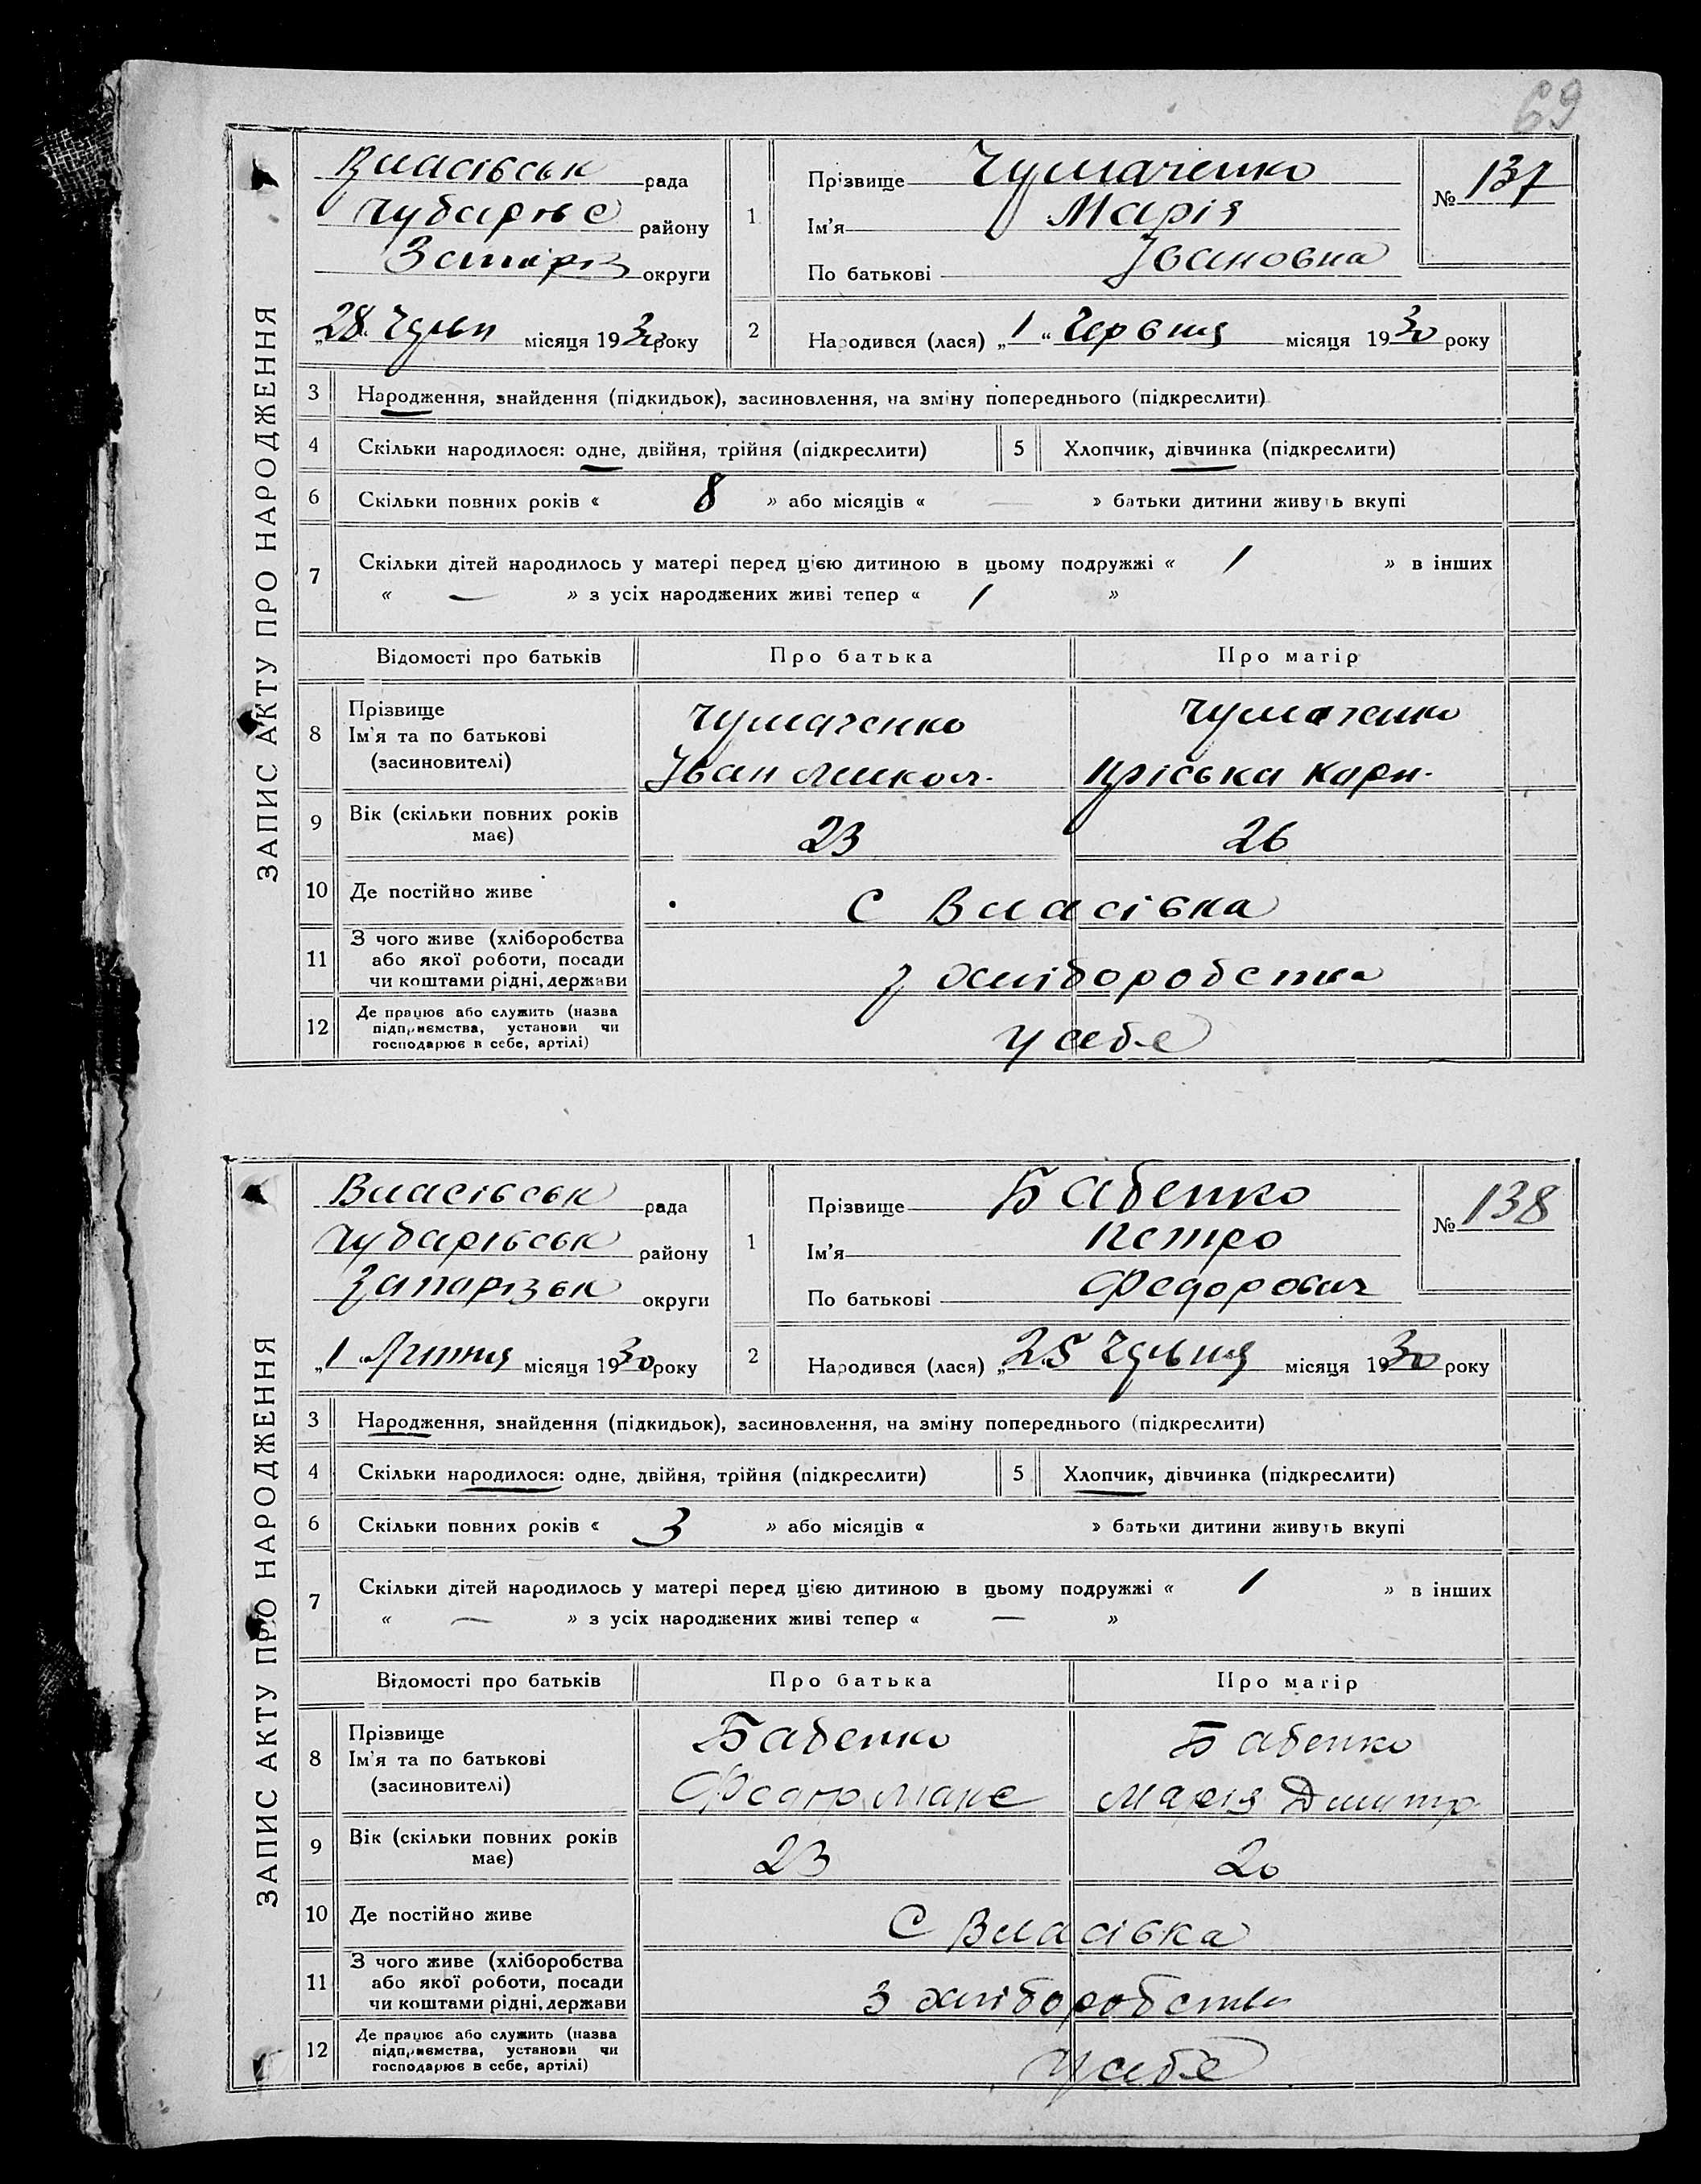 69
ЗАПИС АКТУ ПРО НАРОДЖЕННЯ
Власівськ рада
Чубарівс району
Запоріз округи
„28 Червн місяця 1930 року
1 Прізвище Чумаченко
Ім'я Марія
По батькові Івановна
№ 137
2 Народився (лася) „1“ Червня місяця 1930 року
3 Народження, знайдення (підкидьок), засиновлення, на зміну попереднього (підкреслити)
4 Скільки народилося: одне, двійня, трійня (підкреслити) 5 Хлопчик, дівчинка (підкреслити)
6 Скільки повних років « 8 » або місяців « — » батьки дитини живуть вкупі
7 Скільки дітей народилось у матері перед цією дитиною в цьому подружжі « 1 » в інших
« — » з усіх народжених живі тепер « 1 »
Відомості про батьків Про батька Про матір
8 Прізвище
Ім'я та по батькові
(засиновителі)
Чумаченко
Іван Микол.
Чумаченко
Пріська Карп.
9 Вік (скільки повних років
має)
23 26
10 Де постійно живе С Власівка
11 З чого живе (хліборобства
або якої роботи, посади
чи коштами рідні, держави
з хліборобства
12 Де працює або служить (назва
підприємства, установи чи
господарює в себе, артілі)
у себе
ЗАПИС АКТУ ПРО НАРОДЖЕННЯ
Власівськ рада
Чубарівськ району
Запорізьк округи
„1 Липня місяця 1930 року
1 Прізвище Бабенко
Ім'я Петро
По батькові Федорович
№ 138
2 Народився (лася) „25 Червня місяця 1930 року
3 Народження, знайдення (підкидьок), засиновлення, на зміну попереднього (підкреслити)
4 Скільки народилося: одне, двійня, трійня (підкреслити) 5 Хлопчик, дівчинка (підкреслити)
6 Скільки повних років « 3 » або місяців « » батьки дитини живуть вкупі
7 Скільки дітей народилось у матері перед цією дитиною в цьому подружжі « 1 » в інших
« — » з усіх народжених живі тепер « — »
Відомості про батьків Про батька Про матір
8 Прізвище
Ім'я та по батькові
(засиновителі)
Бабенко
Федор Макс
Бабенко
Марія Дмитр
9 Вік (скільки повних років
має)
23 20
10 Де постійно живе С Власівка
11 З чого живе (хліборобства
або якої роботи, посади
чи коштами рідні, держави
з хліборобства
12 Де працює або служить (назва
підприємства, установи чи
господарює в себе, артілі)
у себе